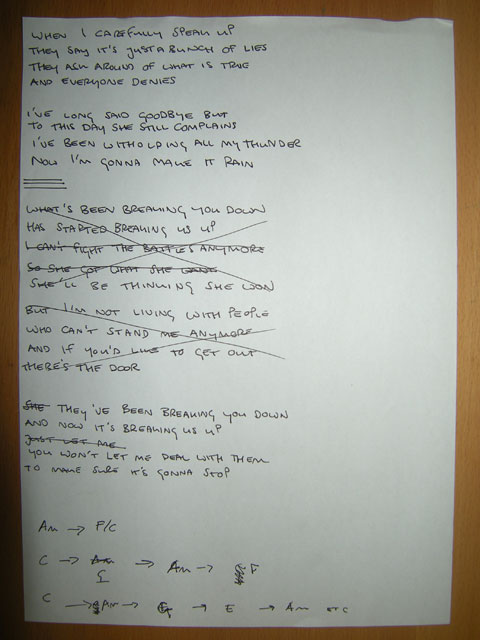 WHEN I CAREFULLY SPEAK UP
THEY SAY IT'S JUST A BUNCH OF LIES
THEY ASK AROUND OF WHAT IS TRUE
AND EVERYONE DENIES
I'VE LONG SAID GOODBYE BUT
TO THIS DAY SHE STILL COMPLAINS
I'VE BEEN WITHOLDING ALL MY THUNDER
NOW I'M GONNA MAKE IT RAIN
WHAT'S BEEN BREAKING YOU DOWN
HAS STARTED BREAKING US UP
I CAN'T FIGHT THE BATTLES ANYMORE
SO SHE GOT WHAT SHE
SHE'LL BE THINKING SHE WON
BUT I'M NOT LIVING WITH PEOPLE
WHO CAN'T STAND ME ANYMORE
AND IF YOU'D LIKE TO GET OUT
THERE'S THE DOOR
SHE THEY'VE BEEN BREAKING YOU DOWN
AND NOW IT'S BREAKING US UP
JUST LET ME
YOU WON'T LET ME DEAL WITH THEM
TO MAKE SURE IT'S GONNA STOP
Am → F/C
C → Am → Am → F
C
C → Am → G → E → Am ETC